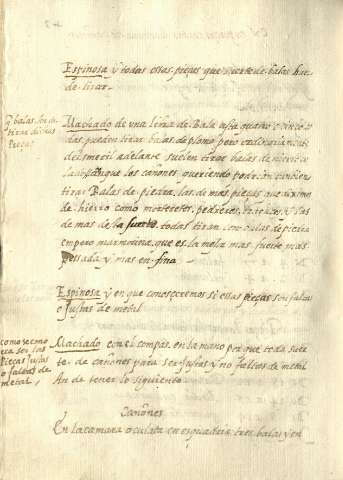 Espinosa y todas essas pieças que suerte de balas han
de tirar.
q balas an de
tirar dichas
Pieças
Machado de una linea de Bala asta quatro o cinco
das pueden tirar balas de plomo pero ordinariam.te
del esmeril adelante suelen tirar balas de hierro
aunque los cañones queriendo podran tambien
tirar Balas de piedra, las demas pieças que
de hierro como morteretes, pedreros, y las
de mas de la fuerte, todas tiran con balas de piedra
empero marmorina, que es la mas fuerte mas
pessada y mas en fina
Espinosa y en que conosceremos si essas pieças son faltas
o justas de metal
como se
ser las
Pieças justas
o faltas de
metal,
Machado con el compas, en la mano porque toda suerte
de cañones para ser justas y no faltos de metal
An de tener lo siguiente
Cañones
En la camara o culata en esquadria tres balas y en